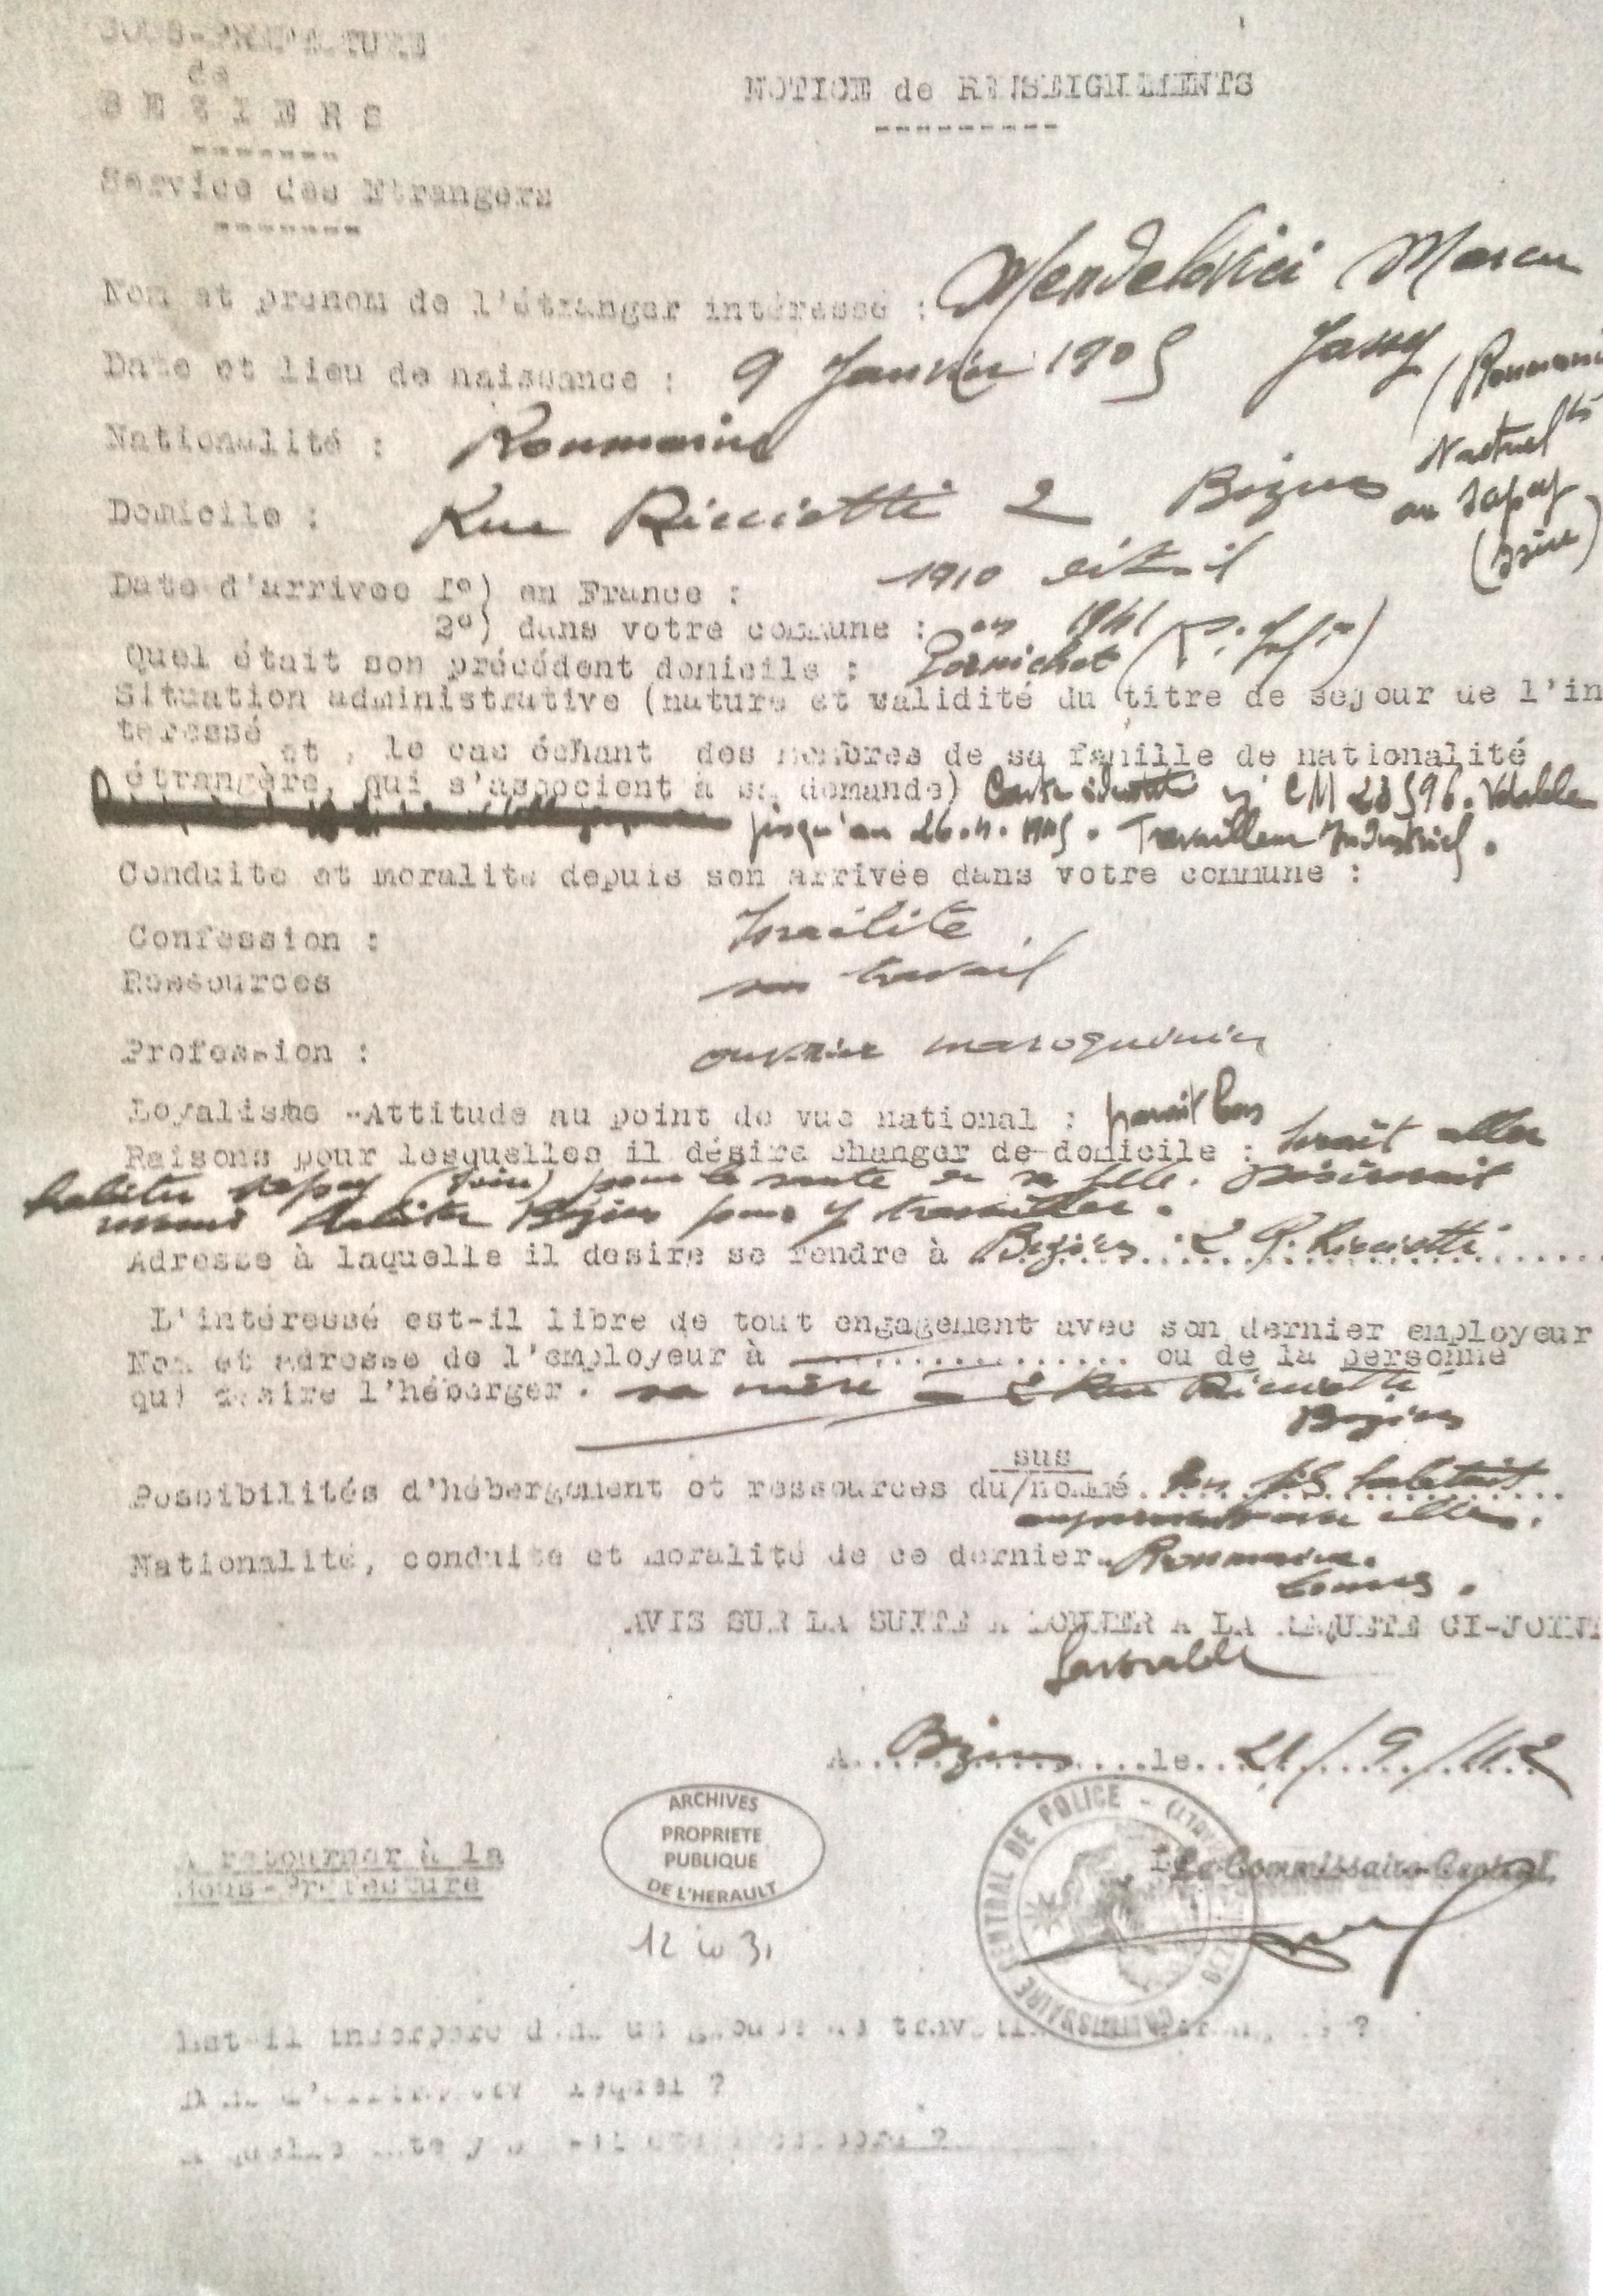 SOUS-PREFECTURE
de
BEZIERS
Service des Etrangers
NOTICE de RENSEIGNEMENTS
Nom et prenom de l'étranger intéressé : Mendelovici Marcu
Date et lieu de naissance : 9 Janvier 1905 Jassy (Roumanie
Nationalité : Roumaine
Domicile : Rue Ricciotti 2 Beziers
au Sapey
(Isère)
Date d'arrivee 1°) en France : 1910
2°) dans votre commune : en 1941
Quel était son précédent domicile : Pornichet
Situation administrative (nature et validité du titre de sejour de l'in
teressé et , le cas échant des membres de sa famille de nationalité
étrangère, qui s'associent à sa demande) Carte identité CM 28596. Valable
jusqu'au Travailleur Industriel.
Conduite et moralite depuis son arrivée dans votre commune :
Confession : Israélite
Ressources son travail
Profession : ouvrier maroquinier
Loyalisme -Attitude au point de vue national : parait bon
Raisons pour lesquelles il désire changer de domicile : aller
habiter Sapey pour la santé de sa fille. Désirerait
habiter Béziers pour y travailler.
Adresse à laquelle il desire se rendre à Beziers 2 R. Ricciotti
L'intéressé est-il libre de tout engagement avec son dernier employeur
Nom et adresse de l'employeur à .......... ou de la personne
qui desire l'héberger. sa mère 2 Rue Ricciotti
Beziers
Possibilités d'hébergement et ressources du/nommé son fils habitait
sus
avec elle.
Nationalité, conduite et moralité de ce dernier. Roumaine.
bonnes.
AVIS SUR LA SUITE A DONNER A LA REQUETE CI-JOINT
Favorable
A Béziers le 21/9/42
A retourner à la
Sous-Prefecture
ARCHIVES
PROPRIETE
PUBLIQUE
DE L'HERAULT
12 W 31
COMMISSAIRE CENTRAL DE POLICE
Le Commissaire Central
Est-il incorporé dans un groupe de travailleurs ?
lequel ?
A quelle date y ?